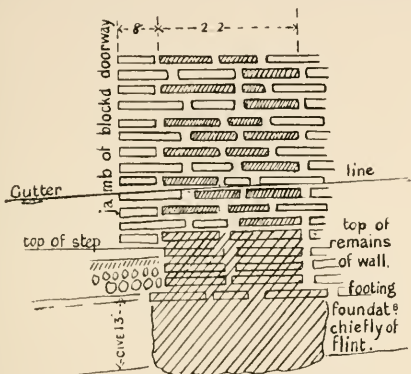 8"
2 2
jamb of blockd doorway
Gutter
line
top of step
top of
remains
of wall.
footing
foundatⁿˢ
chiefly of
flint.
CIVE 13"